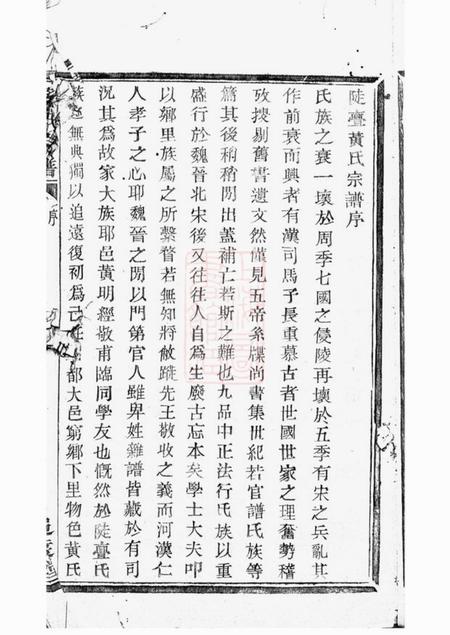 陡亹黃氏宗譜序
氏族之衰一壞於周季七國之侵陵再壞於五季有宋之兵亂其
作前衰而興者有漢司馬子長重慕古者世國世家之理奮勢稽
攷搜剔舊書遺文然僅見五帝系牒尚書集世紀若官譜氏族等
篇其後稍稍閒出蓋補亡若斯之難也九品中正法行氏族以重
盛行於魏晉北宋後又往往人自為生廢古忘本矣學士大夫叩
以鄉里族屬之所繫瞀若無知將敝蹝先王敬收之義而河漢仁
人孝子之心耶魏晉之閒以門第官人雖卑姓雜譜皆藏於有司
況其為故家大族耶邑黃明經敬甫臨同學友也慨然於陡亹氏
族之無典獨以追遠復初為己任 都大邑窮鄉下里物色黃氏
譜
序